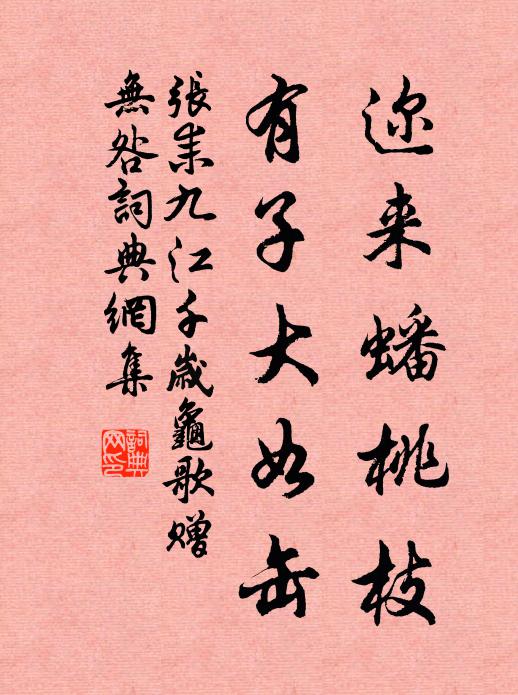 迩来蟠桃枝
有子大如缶
張耒九江千歲龜歌贈
無咎詞典網集
詞典網印